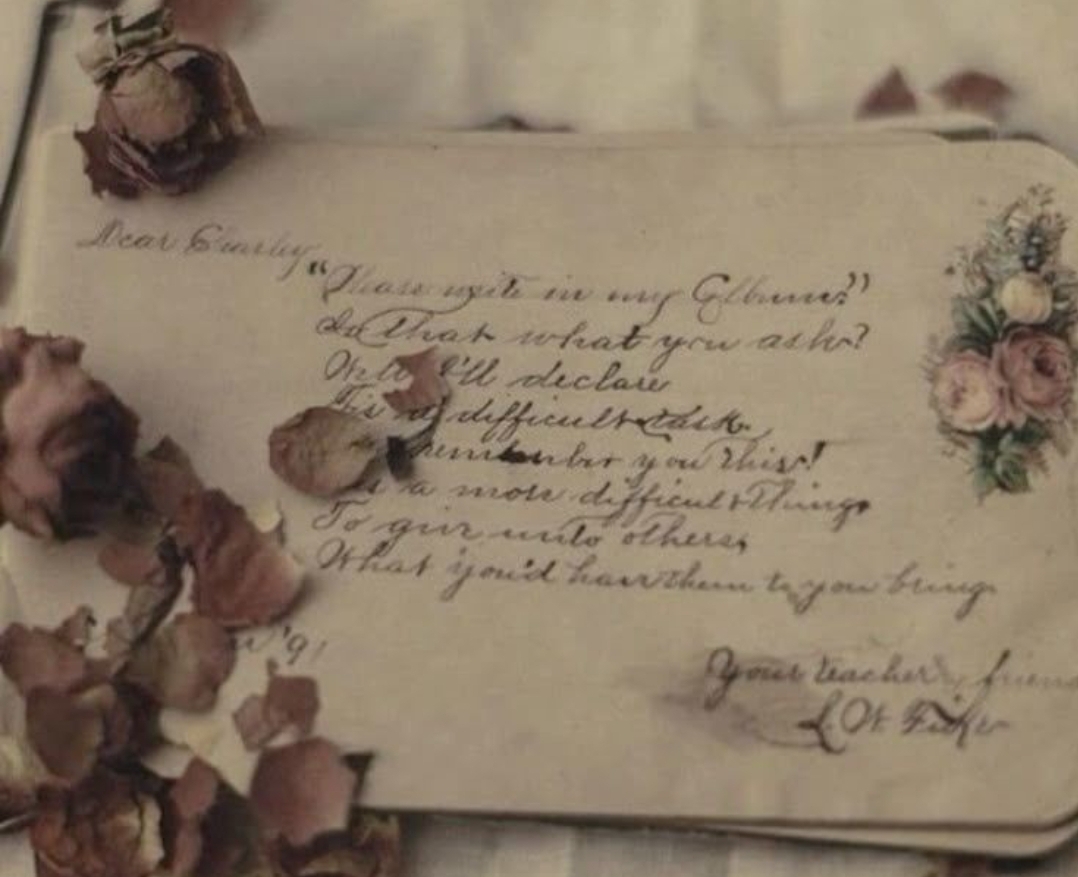 Dear Charley
"Please write in my Album?"
Is that what you ask?
Well I'll declare
Tis a difficult task.
remember you this!
Is a more difficult thing
To give unto others,
What you'd have them to you bring.
'91
Your teacher, friend
L. W.